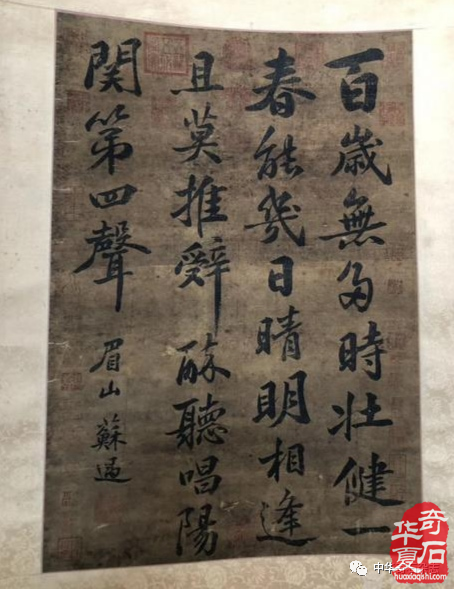 百歲無多時壯健一
春能幾日晴明相逢
且莫推辤醉聽唱陽
関第四聲
眉山蘇過
中华
奇石
华夏
huaxiaqishi.com